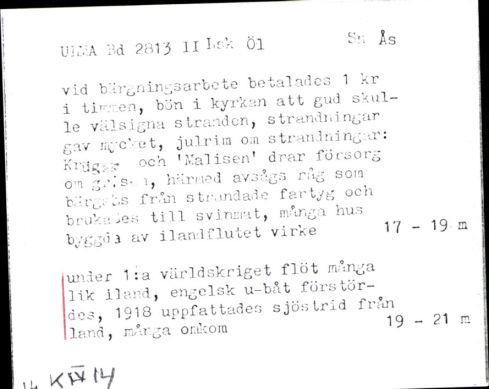 ULMA Bd 2813 II Lsk Öl Sn Ås
vid bärgningsarbete betalades 1 kr
i timmen, bön i kyrkan att gud skul-
le välsigna stranden, strandningar
gav mycket, julrim om strandningar:
och 'Malisen' drar försorg
om grisen, härmed avsågs råg som
bärgats från strandade fartyg och
brukades till svinmat, många hus
byggda av ilandflutet virke 17 - 19 m
under 1:a världskriget flöt många
lik iland, engelsk u-båt förstör-
des, 1918 uppfattades sjöstrid från
land, många omkom 19 - 21 m
K IV 14